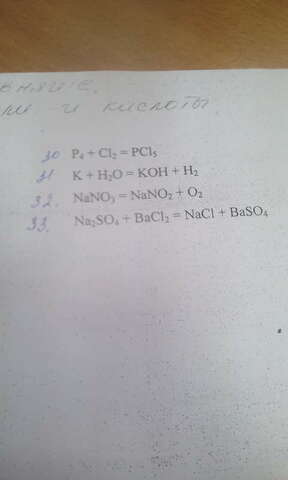 и кислоты
30 P₄ + Cl₂ = PCl₅
31 K + H₂O = KOH + H₂
32. NaNO₃ = NaNO₂ + O₂
33. Na₂SO₄ + BaCl₂ = NaCl + BaSO₄